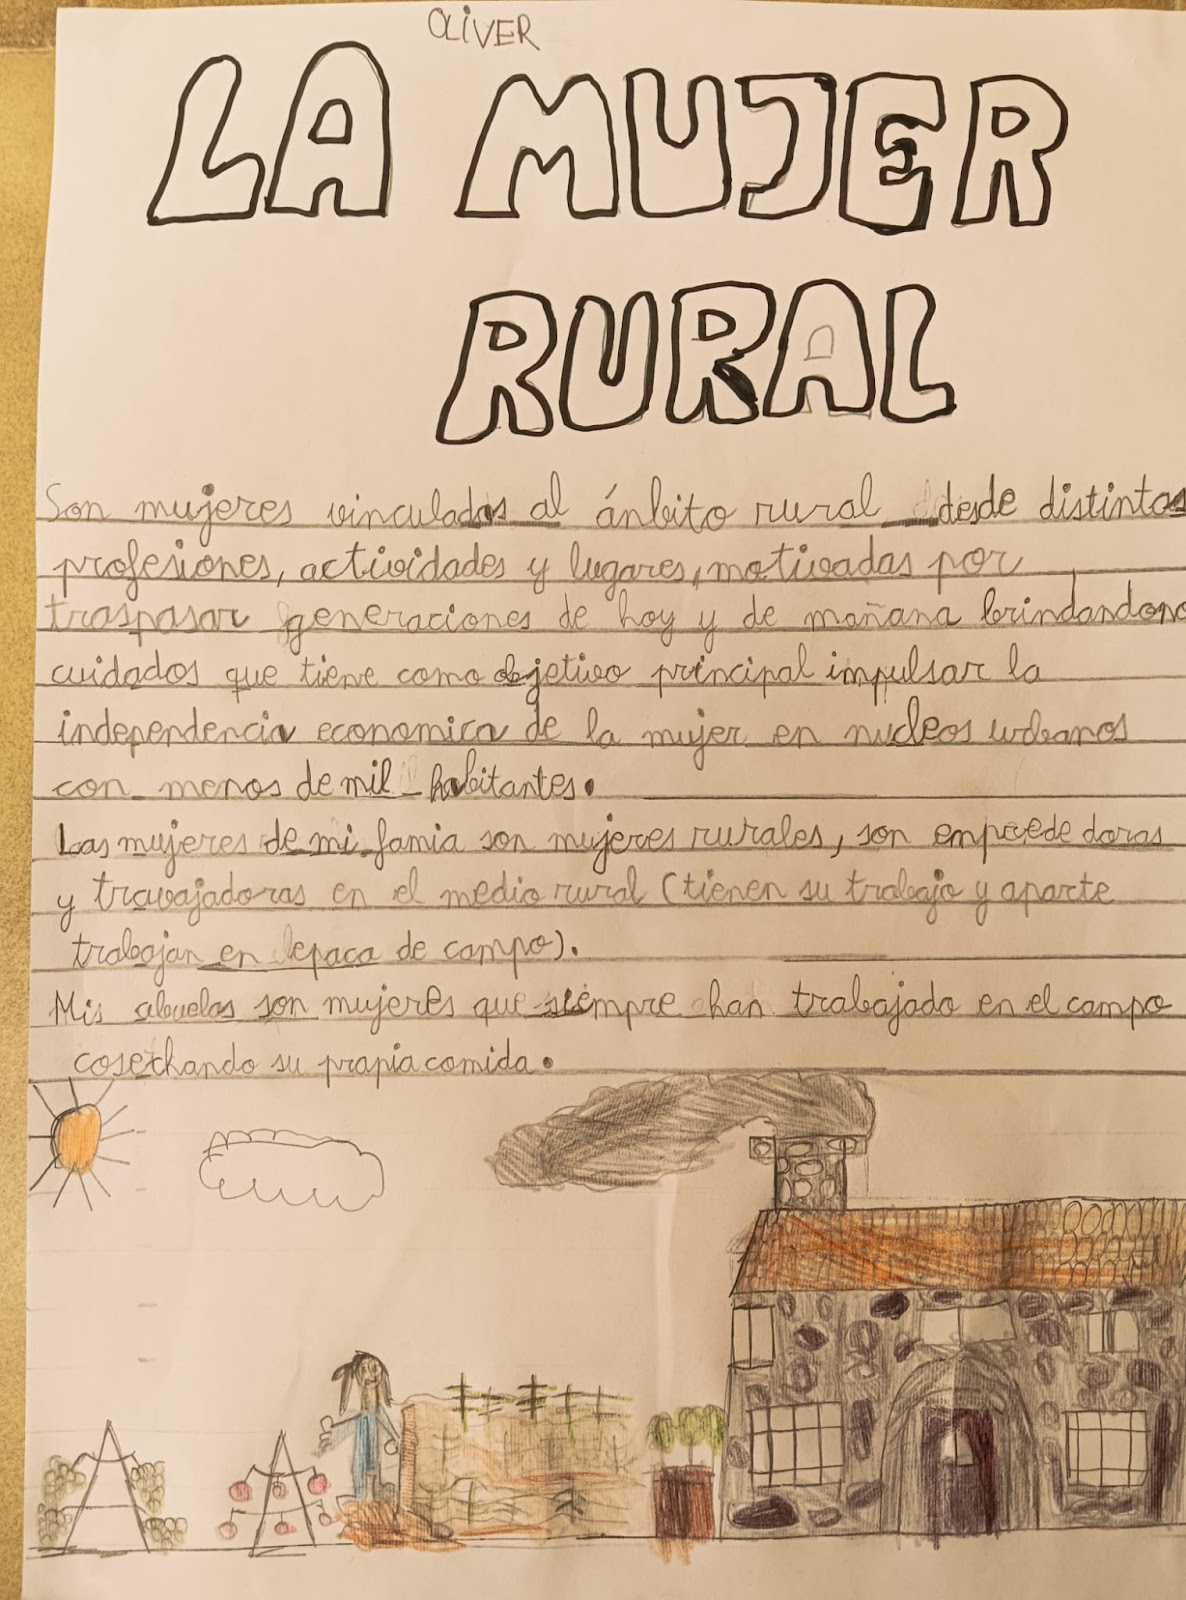 OLIVER
LA MUJER
RURAL
Son mujeres vinculadas al ánbito rural desde distintas
profesiones, actividades y lugares, motivadas por
traspasar generaciones de hoy y de mañana brindandono
cuidados que tiene como objetivo principal impulsar la
independencia economica de la mujer en nucleos urbanos
con menos de mil habitantes.
Las mujeres de mi famia son mujeres rurales, son
y travajadoras en el medio rural (tienen su trabajo y aparte
trabajan en de campo).
Mis abuelas son mujeres que siempre han trabajado en el campo
cosechando su propia comida.